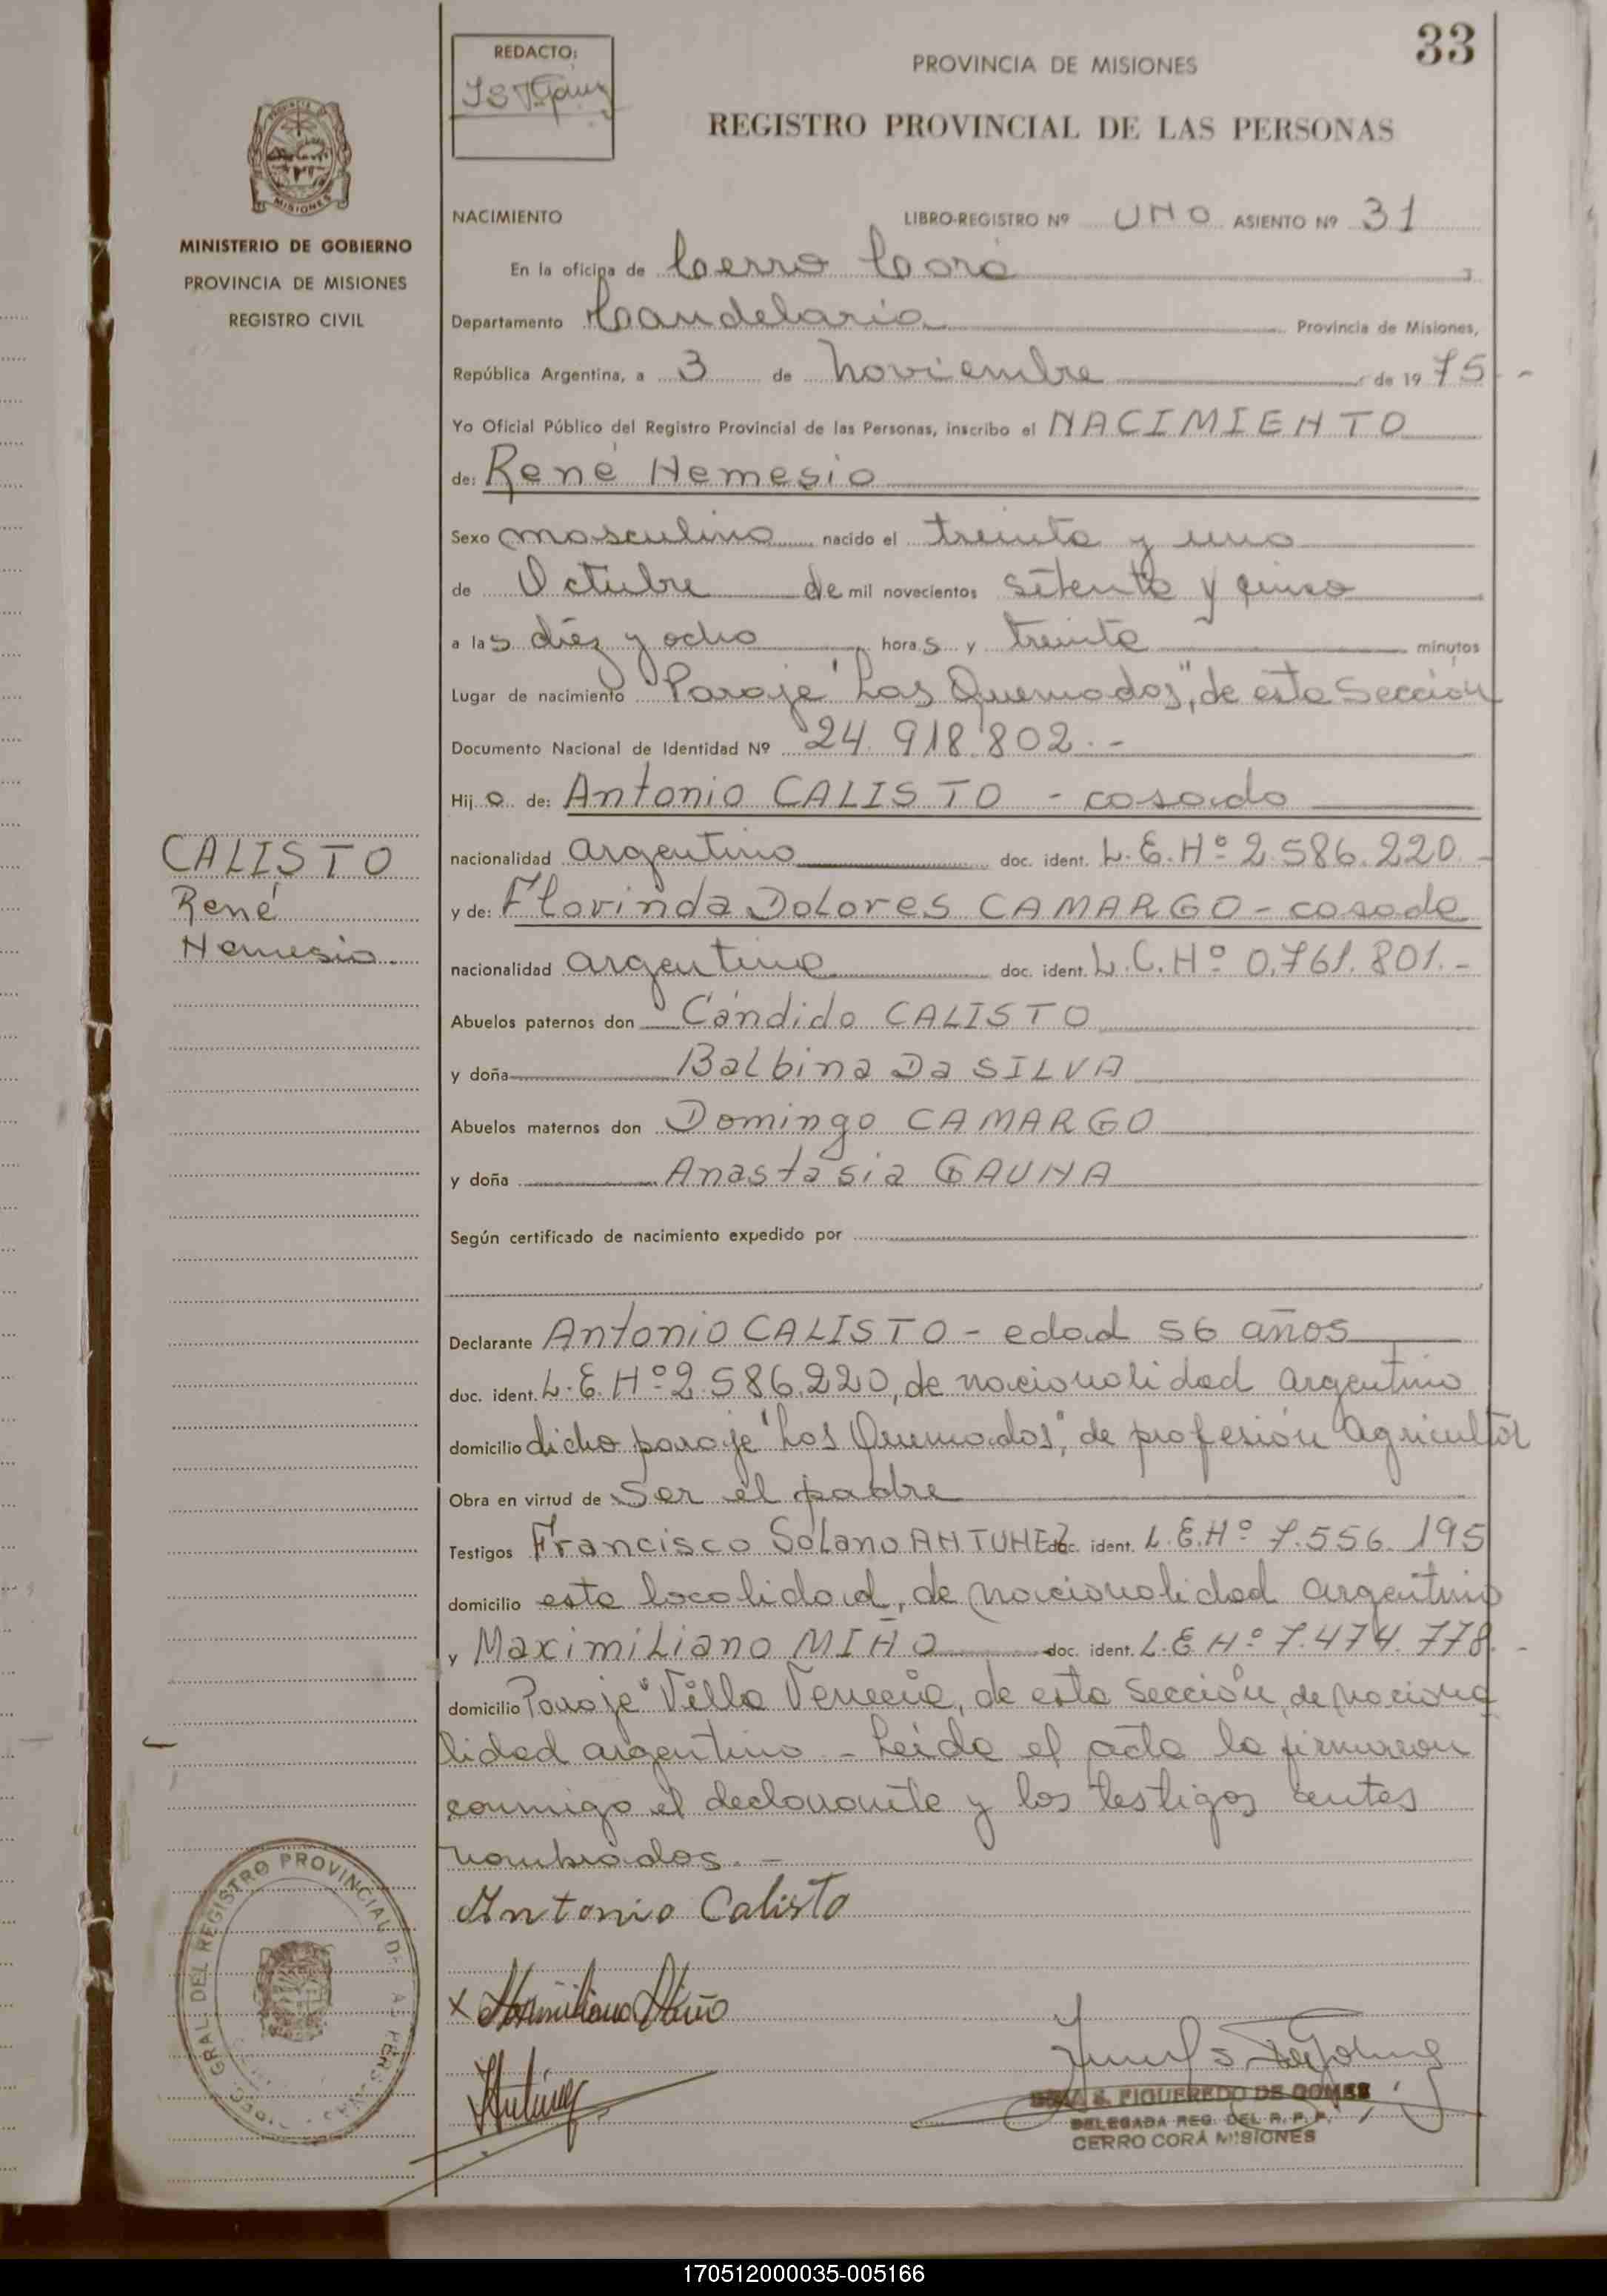 33
REDACTO:
PROVINCIA DE MISIONES
REGISTRO PROVINCIAL DE LAS PERSONAS
MISIONES
MINISTERIO DE GOBIERNO
PROVINCIA DE MISIONES
REGISTRO CIVIL
NACIMIENTO LIBRO-REGISTRO Nº UNO ASIENTO Nº 31
En la oficina de Cerro Corá
Departamento Candelaria Provincia de Misiones,
República Argentina, a 3 de noviembre de 1975.-
Yo Oficial Público del Registro Provincial de las Personas, inscribo el NACIMIENTO
de: René Nemesio
Sexo masculino nacido el treinta y uno
de Octubre de mil novecientos setenta y cinco
a las diez y ocho horas y treinta minutos
Lugar de nacimiento Paraje "Los Quemados", de esta Sección
Documento Nacional de Identidad Nº 24.918.802.-
Hijo de: Antonio CALISTO - casado
nacionalidad argentino doc. ident. L.E.Nº 2.586.220.-
y de: Florinda Dolores CAMARGO - casada
nacionalidad argentina doc. ident. L.C.Nº 0.761.801.-
Abuelos paternos don Cándido CALISTO
y doña Balbina Da SILVA
Abuelos maternos don Domingo CAMARGO
y doña Anastasia GAUNA
Según certificado de nacimiento expedido por
Declarante Antonio CALISTO - edad 56 años
doc. ident. L.E.Nº 2.586.220, de nacionalidad argentino
domicilio dicho paraje "Los Quemados", de profesión Agricultor
Obra en virtud de Ser el padre
Testigos Francisco Solano ANTUNEZ doc. ident. L.E.Nº 7.556.195
domicilio esta localidad, de nacionalidad argentino
y Maximiliano MIÑO doc. ident. L.E.Nº 7.474.778.-
domicilio Paraje "Villa Venecia, de esta Sección, de naciona
lidad argentino - Leída el acta la firmaron
conmigo el declarante y los testigos antes
nombrados.-
CALISTO
René
Nemesio.
Antonio Calisto
x Maximiliano Miño
Antúnez
S. FIGUEREDO DE GOMEZ
DELEGADA REG. DEL R. P. P.
CERRO CORÁ MISIONES
GRAL. DEL REGISTRO PROVINCIAL DE
170512000035-005166